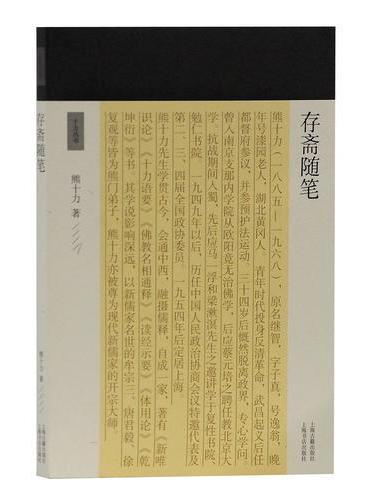 存斋随笔
熊十力（一八八五—一九六八），原名继智，字子真，号逸翁，晚
年号漆园老人，湖北黄冈人。青年时代投身反清革命，武昌起义后任
都督府参议，并参预护法运动。三十四岁后慨然脱离政界，专心学问。
曾入南京支那内学院从欧阳竟无治佛学，后应蔡元培之聘任教北京大
学。抗战期间入蜀，先后应马一浮和梁漱溟先生之邀讲学于复性书院、
勉仁书院。一九四九年以后，历任中国人民政治协商会议特邀代表及
第二、三、四届全国政协委员。一九五四年后定居上海。
熊十力先生学贯古今，会通中西，融摄儒释，自成一家，著有《新唯
识论》《十力语要》《佛教名相通释》《读经示要》《体用论》《乾
坤衍》等书，其学说影响深远，以新儒家名世的牟宗三、唐君毅、徐
复观等皆为熊门弟子，熊十力亦被尊为现代新儒家的开宗大师。
上海古籍出版社
上海书店出版社
存斋随笔
十力丛书
熊十力 著
熊十力 著
上海古籍出版社
上海书店出版社